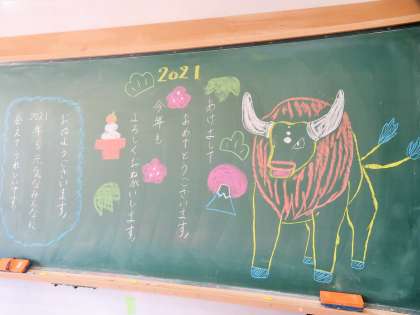 2021
あけまして
おめでとうございます。
今年も
よろしくおねがいします。
おはようございます。
2021年も元気なみんなに
会えてうれしいです。